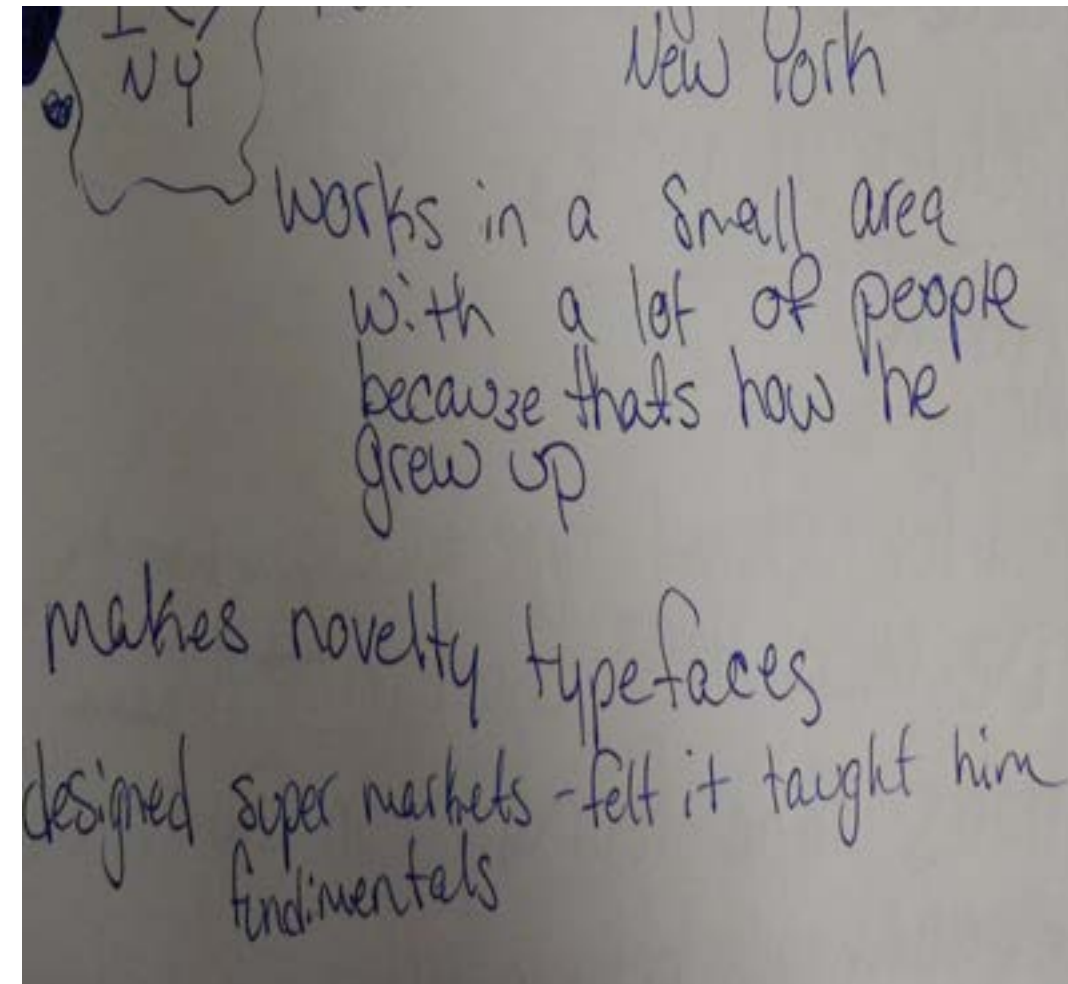 NY
New York
works in a small area
with a lot of people
because thats how he
grew up
makes novelty typefaces
designed super markets - felt it taught him
findimentals